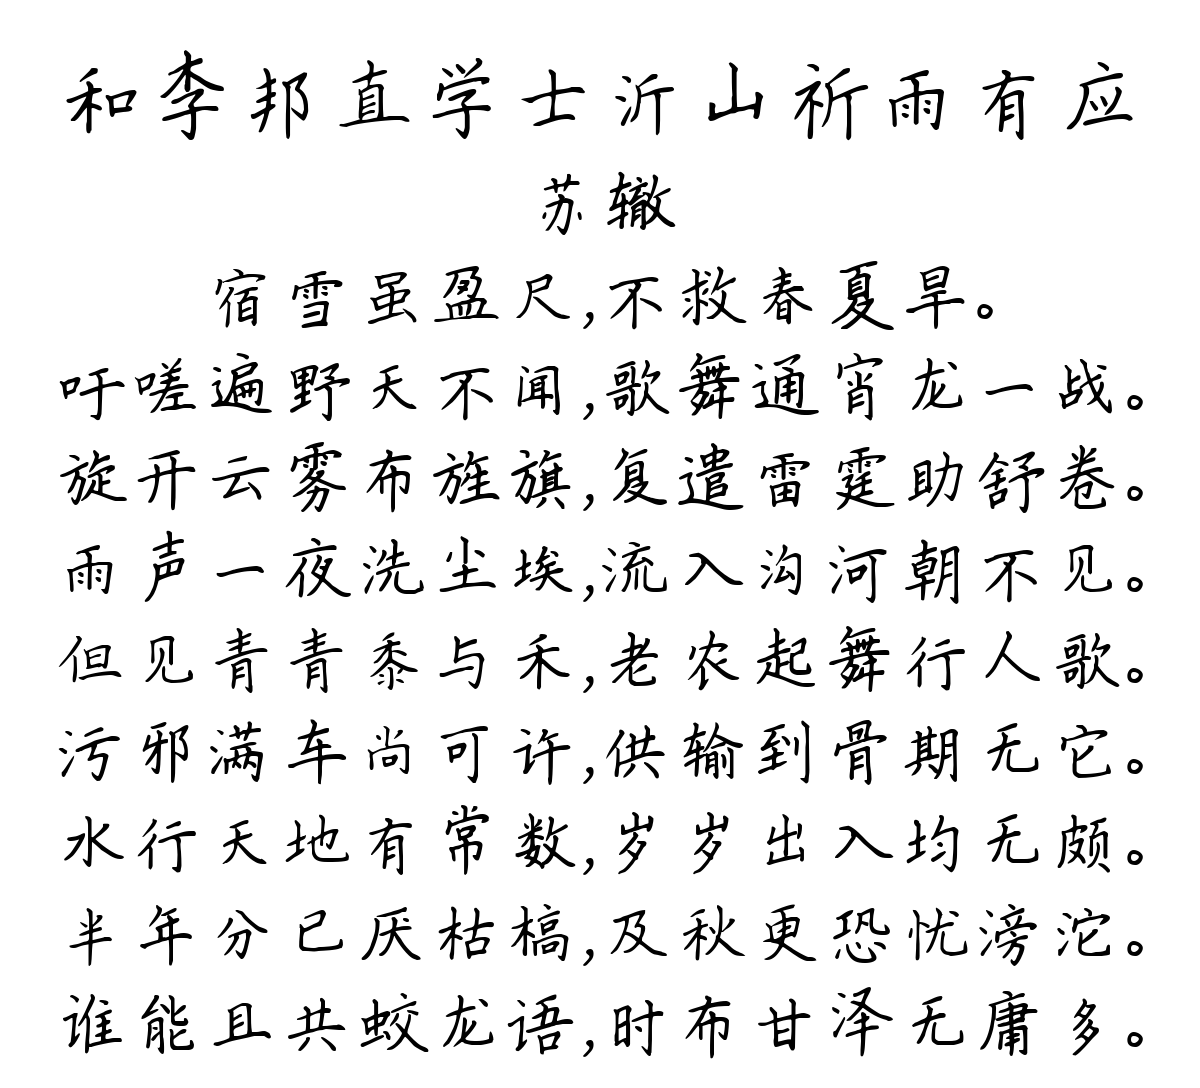 和李邦直学士沂山祈雨有应
苏辙
宿雪虽盈尺,不救春夏旱。
吁嗟遍野天不闻,歌舞通宵龙一战。
旋开云雾布旌旗,复遣雷霆助舒卷。
雨声一夜洗尘埃,流入沟河朝不见。
但见青青黍与禾,老农起舞行人歌。
污邪满车尚可许,供输到骨期无它。
水行天地有常数,岁岁出入均无颇。
半年分已厌枯槁,及秋更恐忧滂沱。
谁能且共蛟龙语,时布甘泽无庸多。